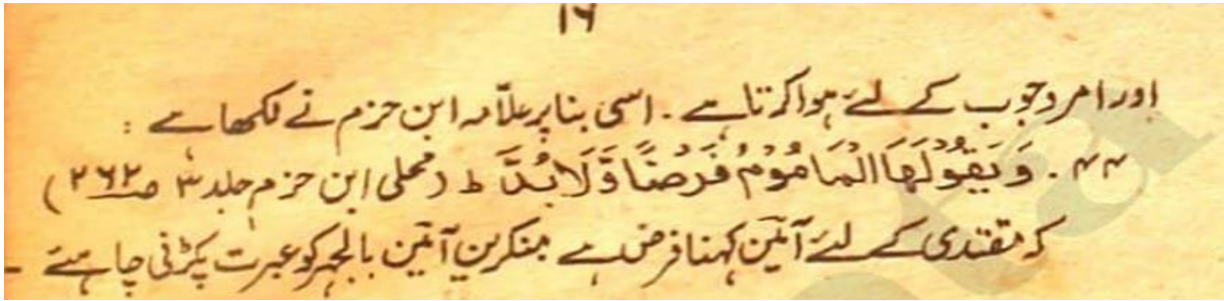 ۱۶
اور امر وجوب کے لئے ہوا کرتا ہے ۔ اسی بنا پر علّامہ ابن حزم نے لکھا ہے :
۴۴ ۔ وَيَقُوْلُهَا الْمَامُوْمُ فَرْضًا وَّلَا بُدَّ ط (محلی ابن حزم جلد ۳ ص۲۶۲)
کہ مقتدی کے لئے آمین کہنا فرض ہے منکرین آمین بالجہر کو عبرت پکڑنی چاہئے ۔